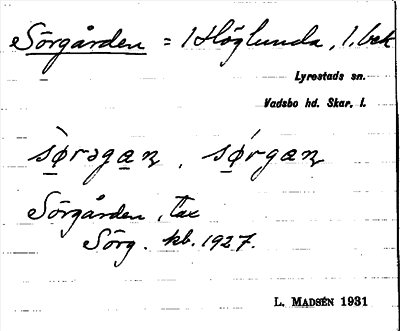 Sörgården = 1 Höglunda, 1. bek
Lyrestads sn.
Vadsbo hd. Skar. l.
sø̀rəgan̨, sǿrgan̨
Sörgården, Tax
Sörg. kb. 1927.
L. MADSÉN 1931